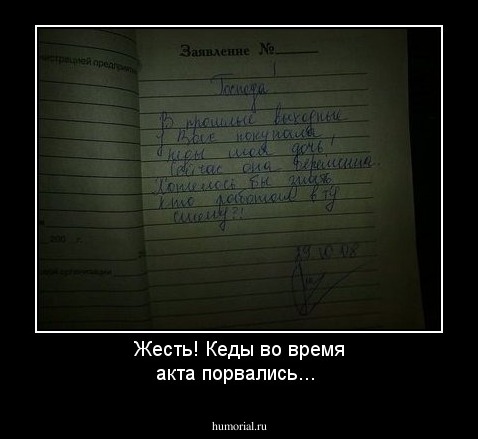 нистрацией предприят
Заявление №
Господа!
В прошлые выходные
у Вас покупала
кеды моя дочь!
Сейчас она беременна.
Хотелось бы знать
кто работал в ту
смену?!
200 г.
организации
29.10.08
Жесть! Кеды во время
акта порвались...
humorial.ru